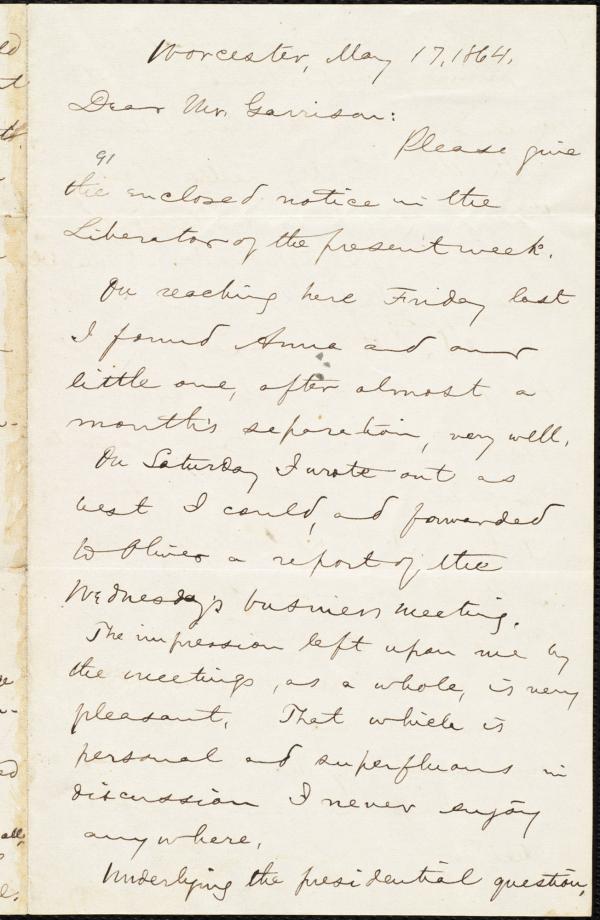 Worcester, May 17, 1864.
Dear Mr. Garrison:
Please give
91
the enclosed notice in the
Liberator of the present week.
On reaching here Friday last
I found Anna and our
little one, after almost a
month's separation, very well.
On Saturday I wrote out as
best I could, and forwarded
to Oliver a report of the
Wednesday's business meeting.
The impression left upon me by
the meetings, as a whole, is very
pleasant. That which is
personal and superfluous in
discussion I never enjoy
anywhere.
Underlying the presidential question,